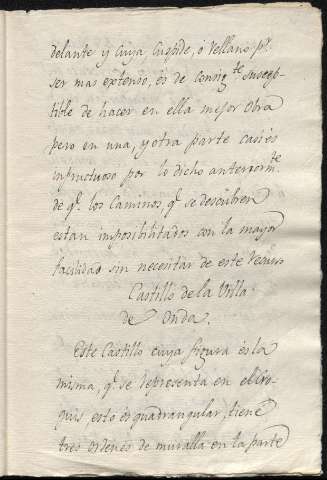 delante y cuya Cuspide, ó Rellano p.r
ser mas extenso, es de consig.te suscep-
tible de hacer en ella mejor obra
pero en una, y otra parte casi es
infructuoso por lo dicho anteriorm.te
de q.e los Caminos q.e se descubren
estan imposibilitados con la mayor
facilidad sin necesitar de este recurso
Castillo de la Villa
de Onda.
Este Castillo cuya figura es la
misma, q.e se representa en el Cro-
quis, esto es quadrangular, tiene
tres ordenes de muralla en la parte